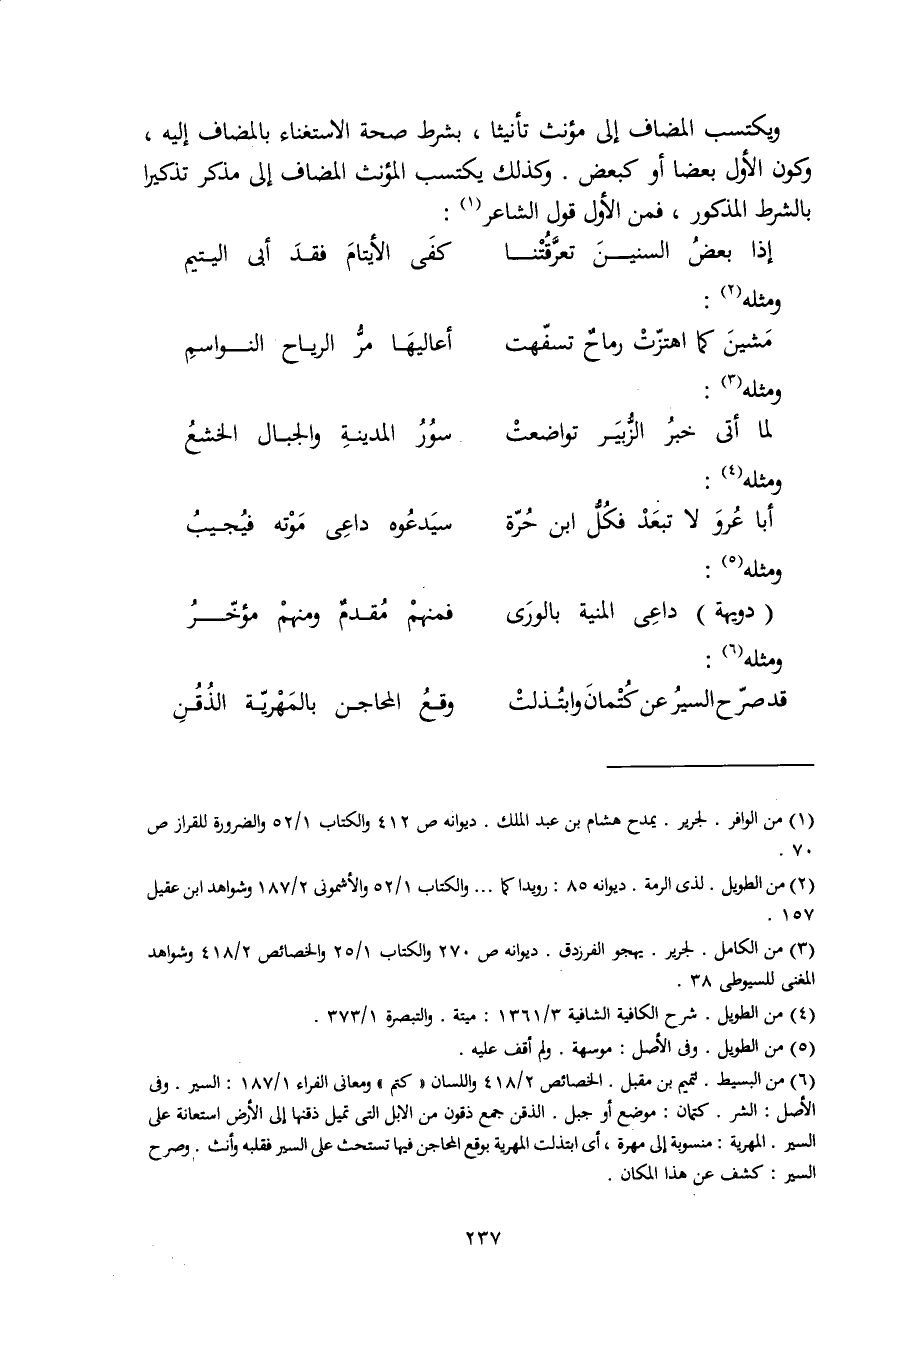 ويكتسب المضاف إلى مؤنث تأنيثا ، بشرط صحة الاستغناء بالمضاف إليه ،
وكون الأول بعضا أو كبعض . وكذلك يكتسب المؤنث المضاف إلى مذكر تذكيرا
بالشرط المذكور ، فمن الأول قول الشاعر(١) :
إذا بعضُ السنيـــنَ تعرَّقتْنـــا كفَى الأيتامَ فقـدَ أبى اليـتيم
ومثله(٢) :
مَشينَ كما اهتزّتْ رماحٌ تسفّهت أعاليهَـا مرُّ الريـاح النـــواسمِ
ومثله(٣) :
لما أتى خبرُ الزُّبيَـر تواضعتْ سوُرُ المدينـةِ والجبـال الخشعُ
ومثله(٤) :
أبا عُروَ لا تبعَدْ فكلُّ ابن حُرّة سيَدعُوه داعِى مَوْته فيُجـيبُ
ومثله(٥) :
( دويهة ) داعِى المنية بالورَى فمنهمْ مُقـدمٌ ومنهمْ مؤخّـــرُ
ومثله(٦) :
قد صرّح السيرُ عن كُتْمانَ وابتُـذلتْ وقـعُ المحاجـن بالمَهْريّـة الذُقُـنِ
(١) من الوافر . لجرير . يمدح هشام بن عبد الملك . ديوانه ص ٤١٢ والكتاب ٥٢/١ والضرورة للقراز ص
٧٠ .
(٢) من الطويل . لذى الرمة . ديوانه ٨٥ : رويدا كما ... والكتاب ٥٢/١ والأشمونى ١٨٧/٢ وشواهد ابن عقيل
١٥٧ .
(٣) من الكامل . لجرير . يهجو الفرزدق . ديوانه ص ٢٧٠ والكتاب ٢٥/١ والخصائص ٤١٨/٢ وشواهد
المغنى للسيوطى ٣٨ .
(٤) من الطويل . شرح الكافية الشافية ١٣٦١/٣ : ميتة . والتبصرة ٣٧٣/١ .
(٥) من الطويل . وفى الأصل : موسهة . ولم أقف عليه .
(٦) من البسيط . لتميم بن مقبل . الخصائص ٤١٨/٢ واللسان « كتم » ومعانى الفراء ١٨٧/١ : السير . وفى
الأصل : الشر . كتمان : موضع أو جبل . الذقن جمع ذقون من الابل التى تميل ذقنها إلى الأرض استعانة على
السير . المهرية : منسوبة إلى مهرة ، أى ابتذلت المهرية بوقع المحاجن فيها تستحث على السير فقلبه وأنث . وصرح
السير : كشف عن هذا المكان .
٢٣٧